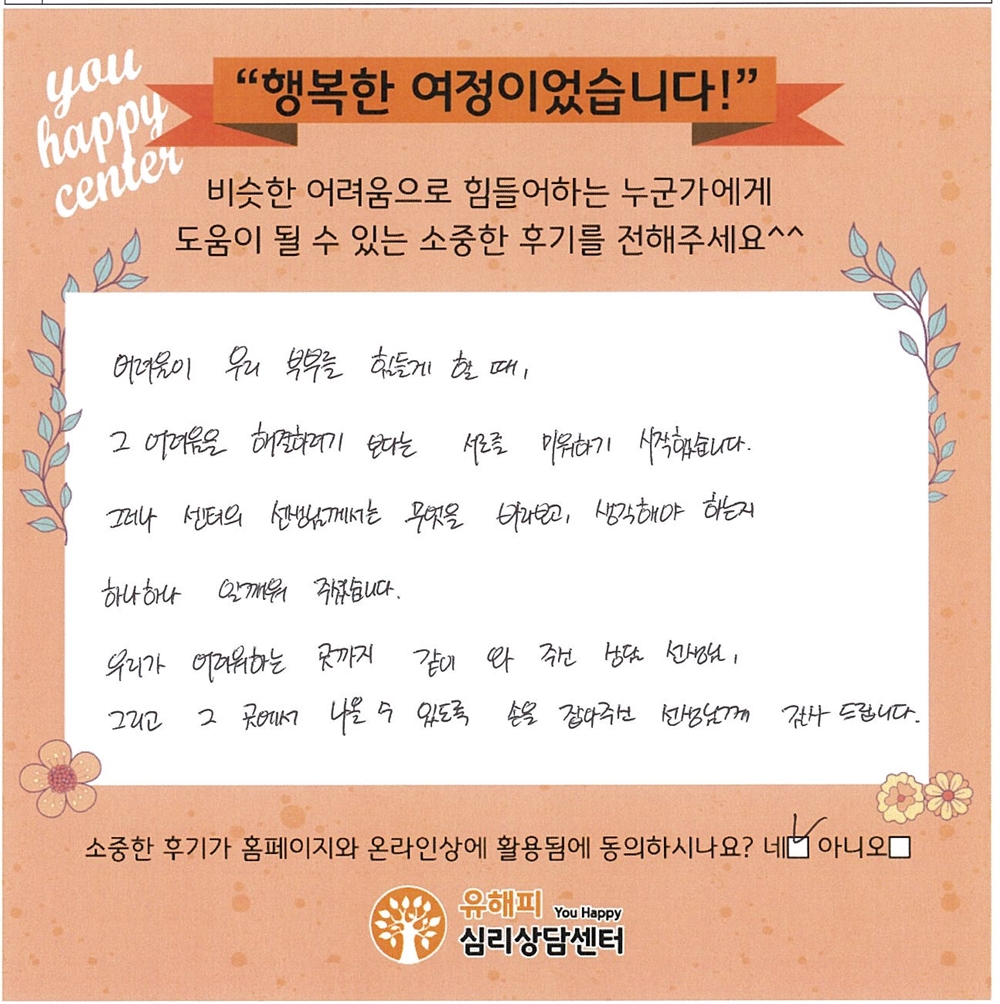 you
happy
center
“행복한 여정이었습니다!”
비슷한 어려움으로 힘들어하는 누군가에게
도움이 될 수 있는 소중한 후기를 전해주세요^^
어려움이 우리 부부를 힘들게 할 때,
그 어려움을 해결하려기 보다는 서로를 미워하기 시작했습니다.
그러나 센터의 선생님께서는 무엇을 바라보고, 생각해야 하는지
하나하나 일깨워 주셨습니다.
우리가 어려워하는 곳까지 같이 와 주신 상담 선생님,
그리고 그 곳에서 나올 수 있도록 손을 잡아주신 선생님께 감사 드립니다.
소중한 후기가 홈페이지와 온라인상에 활용됨에 동의하시나요? 네☑ 아니오□
유해피 You Happy
심리상담센터